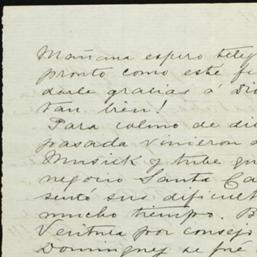 Mañana espero teleg
pronto como este fu
darle gracias á Dio
tan bien!
Para colmo de di
pasada vinieron
Musick y tube qu
negocio Santa Ca
sus dificult
mucho tiempo. B
Ventura por consejo
Dominguez se fué